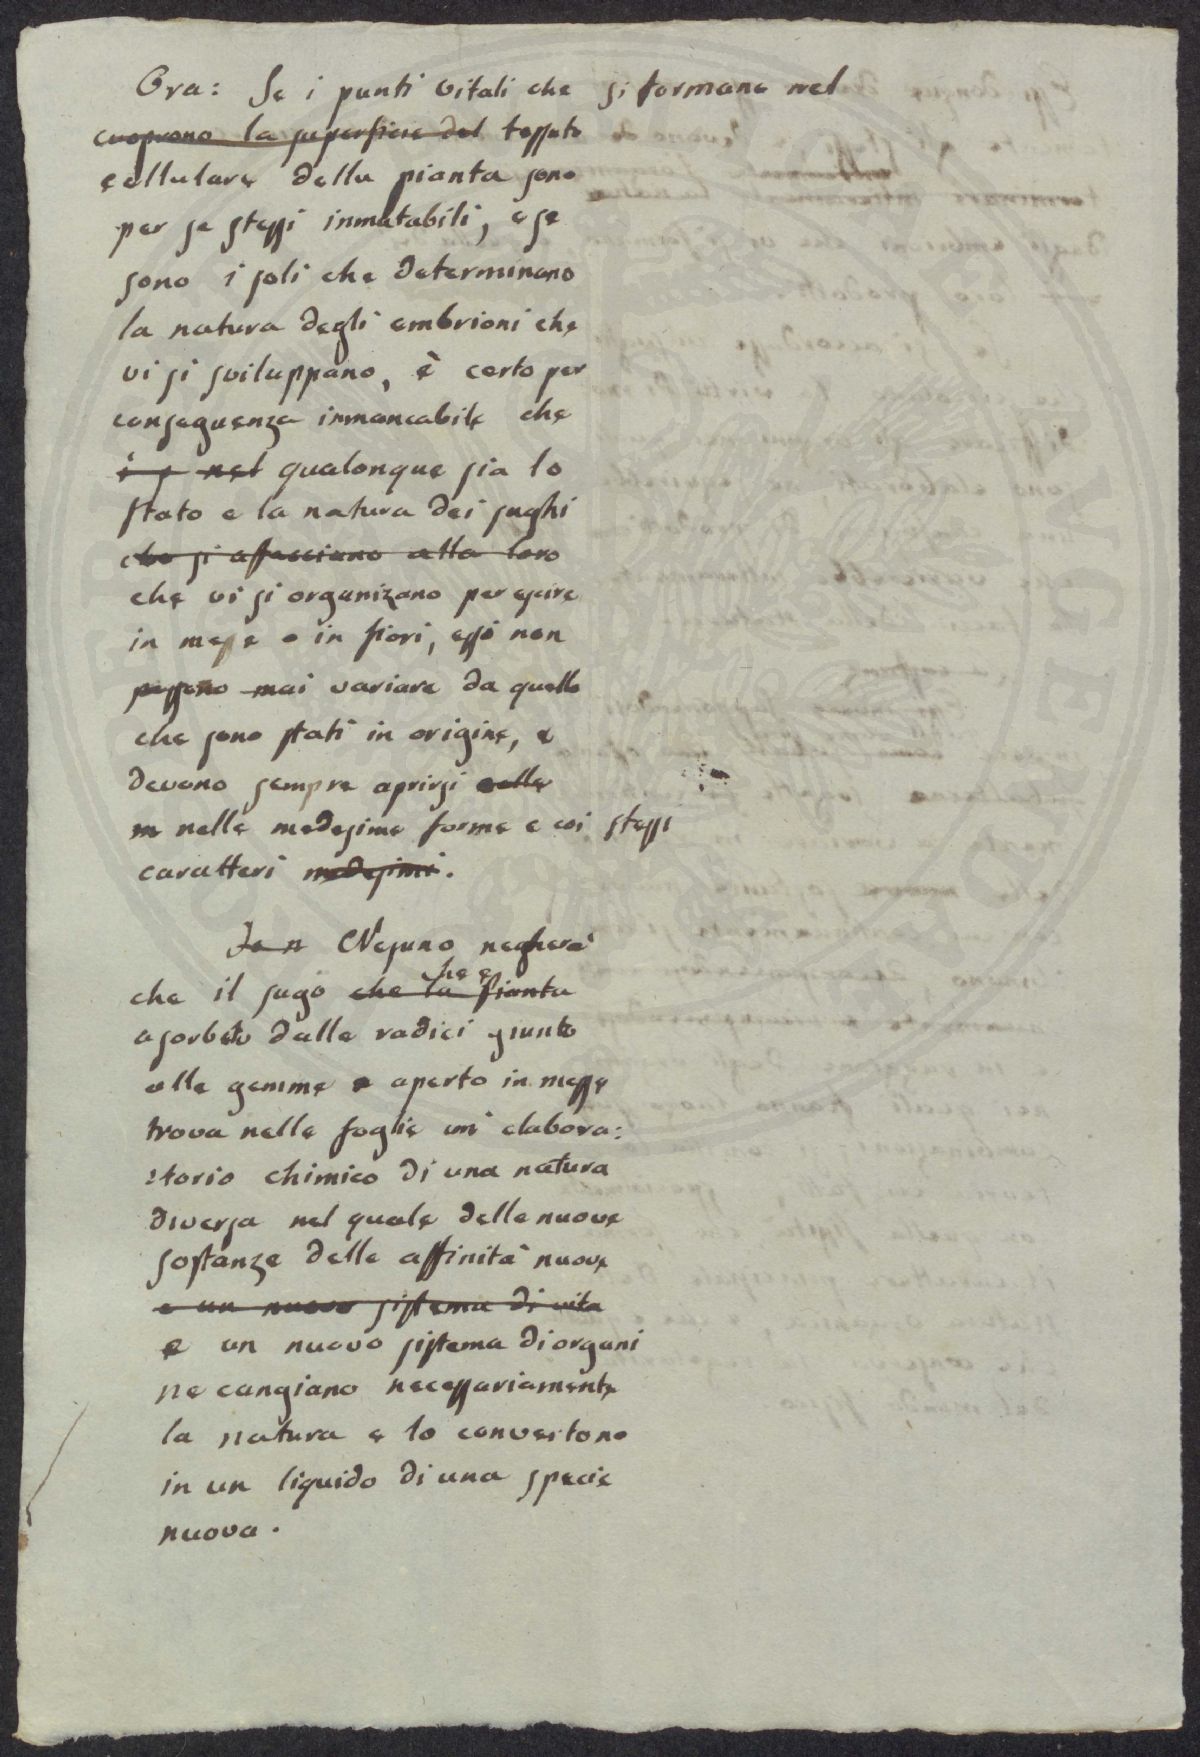 Ora: Se i punti vitali che si formano nel
cuoprono la superficie del tessuto
cellulare della pianta sono
per se stessi inmutabili, e se
sono i soli che determinano
la natura degli embrioni che
vi si sviluppano, è certo per
conseguenza inmancabile che
è e nel qualonque sia lo
stato e la natura dei sughi
che si affacciano alla loro
che vi si organizano per escire
in messe o in fiori, essi non
possono mai variare da quello
che sono stati in origine, e
devono sempre aprirsi nelle
m nelle medesime forme e coi stessi
caratteri medesimi.
Se n Nesuno negherà
che e
che il sugo che la pianta
asorbeto dalle radici giunto
alle gemme e aperto in messe
trova nelle foglie un' elabora:
:torio chimico di una natura
diversa nel quale delle nuove
sostanze delle affinità nuove
e un nuovo sistema di vita
e un nuovo sistema di organi
ne cangiano necessariamente
la natura e lo convertono
in un liquido di una specie
nuova.